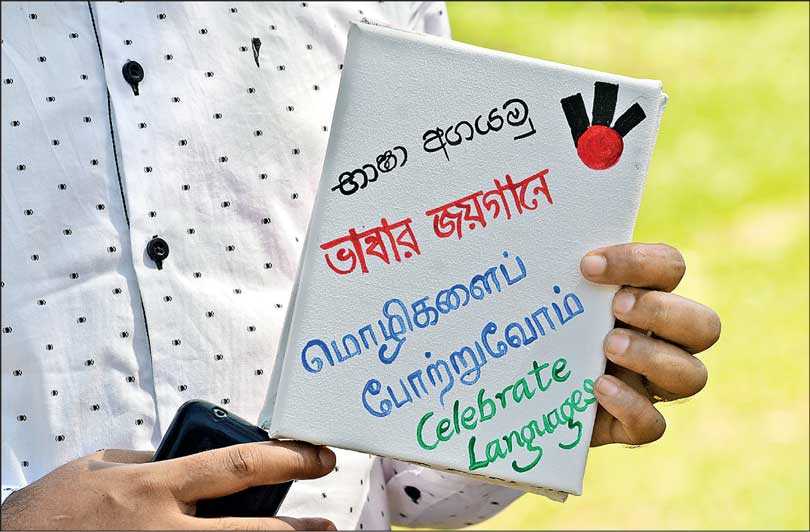 භාෂා අගයමු
ভাষার জয়গানে
மொழிகளைப்
போற்றுவோம்
Celebrate
Languages